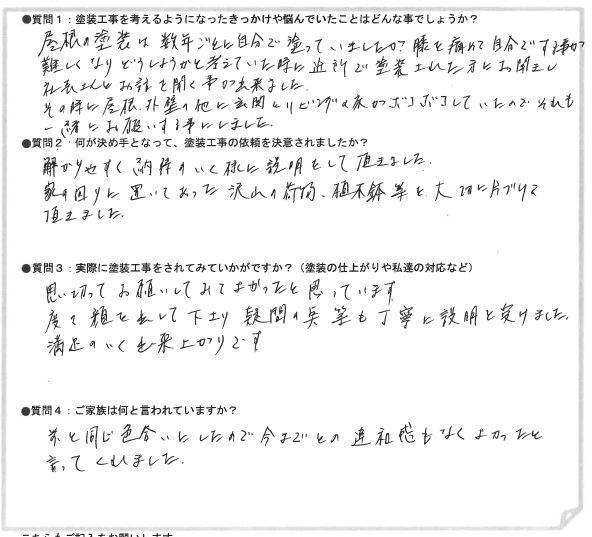 ●質問1：塗装工事を考えるようになったきっかけや悩んでいたことはどんな事でしょうか？
屋根の塗装は数年ごとに自分で塗っていましたが？膝を痛めて自分でする事が
難しくなりどうしようかと考えていた時に近所で塗装された方にお聞きし
社長さんとお話を聞く事が出来ました。
その時に屋根、外壁の他に玄関とリビングの床がボコボコしていたのでそれも
一緒にお願いする事にしました。
●質問2：何が決め手となって、塗装工事の依頼を決意されましたか？
解かりやすく納得のいく様に説明をして頂きました。
家の回りに置いてあった沢山の荷物、植木鉢等を大切に片づけて
頂きました。
●質問3：実際に塗装工事をされてみていかがですか？（塗装の仕上がりや私達の対応など）
思い切ってお願いしてみてよかったと思っています
度々顔を出して下さり疑問の点等も丁寧に説明を受けました。
満足のいく出来上がりです
●質問4：ご家族は何と言われていますか？
元と同じ色合いにしたので今までとの違和感もなくよかったと
言ってくれました。
こちらもご記入をお願いします